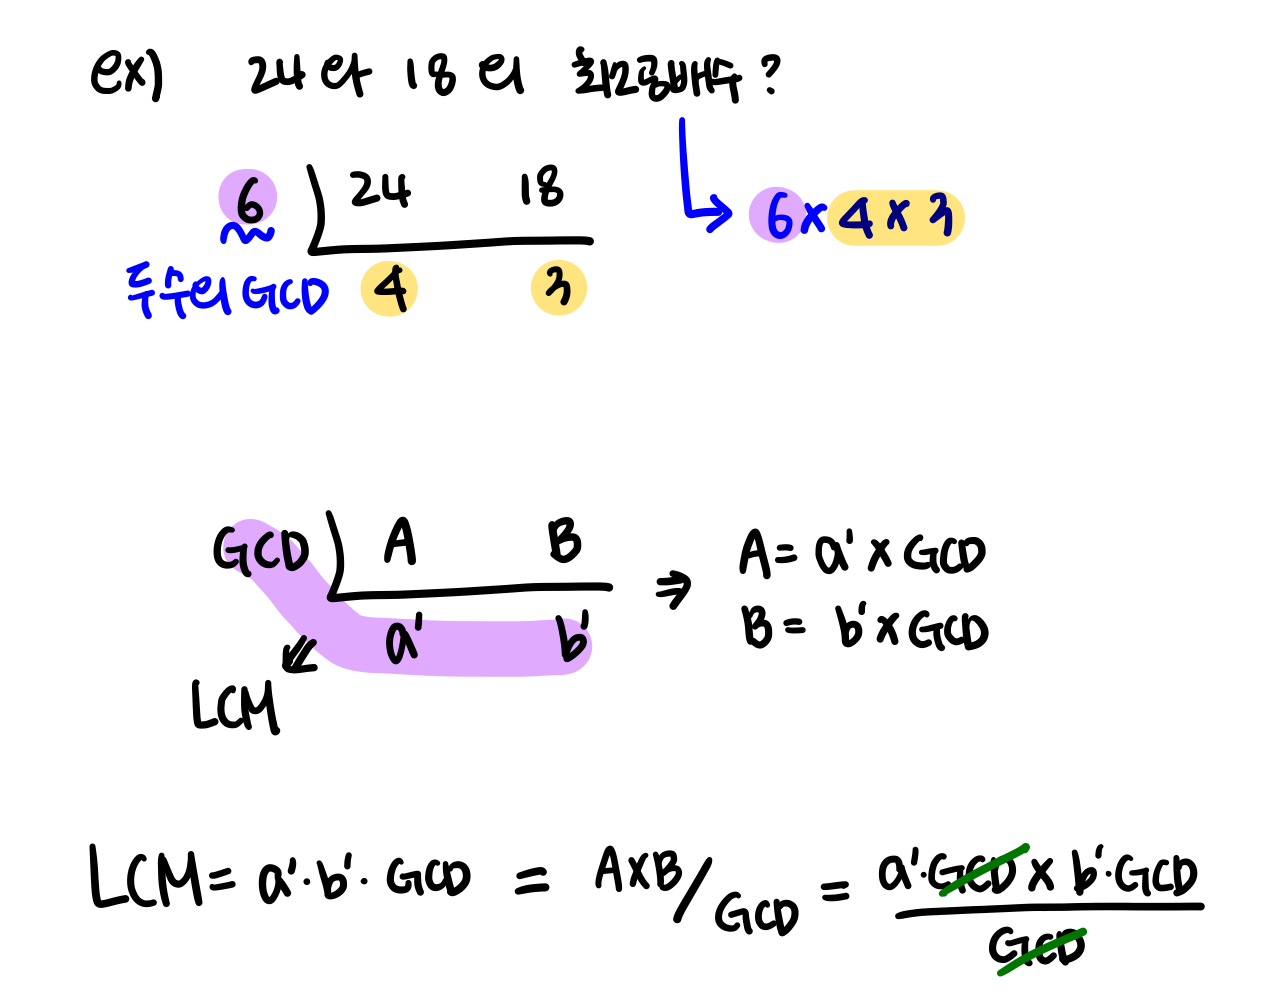 ex) 24와 18의 최소공배수?
6 24 18
6 x 4 x 3
두수의 GCD 4 3
GCD A B ⇒ A = a' x GCD
a' b' B = b' x GCD
LCM
LCM = a'·b'·GCD = AxB/GCD = a'·GCD x b'·GCD
GCD